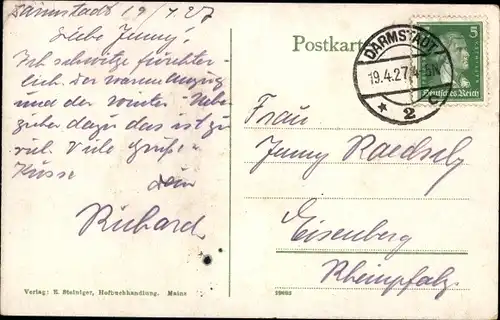 Darmstadt 19/4.27
Liebe Jenny!
Ich schwitze fürchter-
lich. Der warme Anzug
und der Winter-Ueber-
zieher dazu das ist zu
viel. Viele Grüße
Küsse
Dein
Richard
Postkarte
DARMSTADT
19.4.27
* 2
5
Deutsches Reich
Frau
Jenny
Eisenberg
Rheinpfalz
Verlag: E. Steiniger, Hofbuchhandlung. Mainz